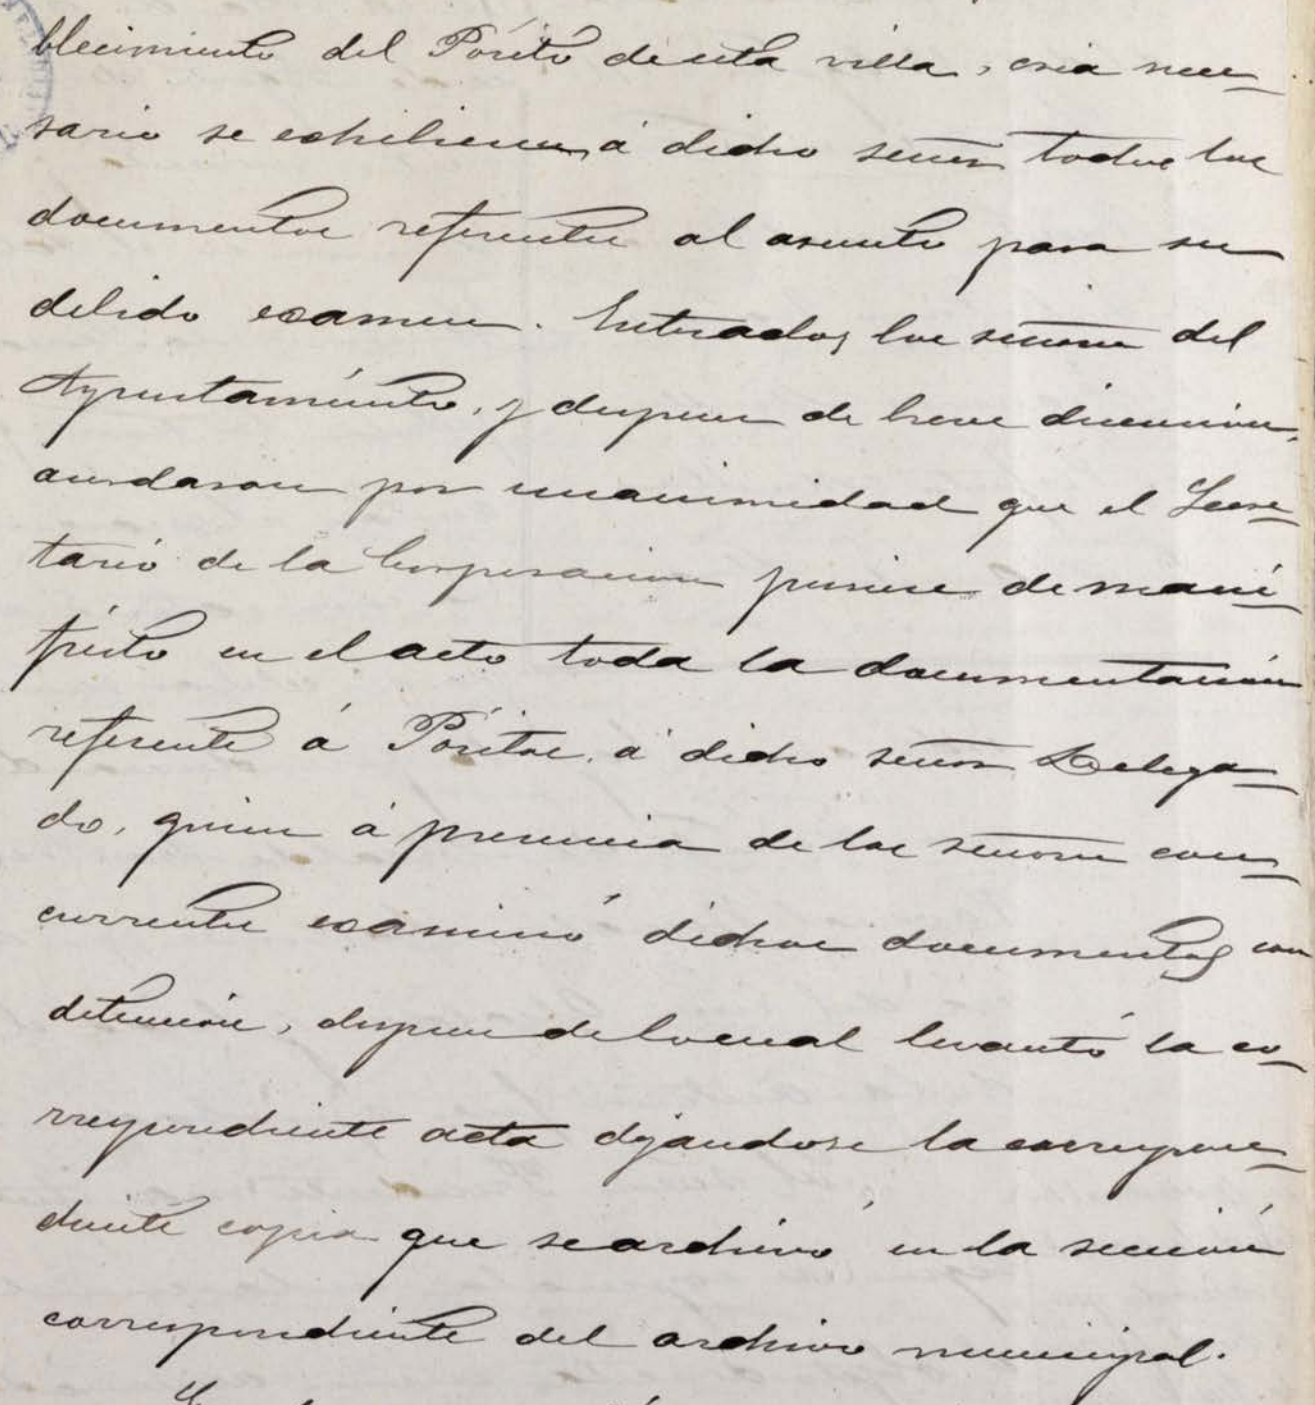 blecimiento del Pósito de esta villa, creia nece-
sario se exhibieran á dicho señor todos los
documentos referentes al asunto para su
debido examen. Enterados los señores del
Ayuntamiento, y despues de breve discusion,
acordaron por unanimidad que el Secre-
tario de la Corporacion pusiese de mani-
fiesto en el acto toda la documentación
referente á Pósitos, á dicho señor Delega-
do, quien á presencia de los señores con-
currentes examinó dichos documentos con
detención, despues de lo cual levantó la co-
rrespondiente acta dejandose la correspon-
diente copia que se archivó en la sección
correspondiente del archivo municipal.